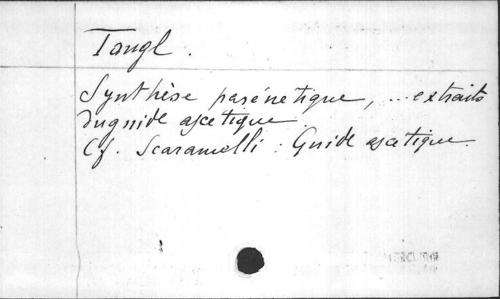 Tangl.
Synthèse parénétique, ... extraits
du guide ascétique.
Cf. Scaramelli : Guide ascétique.